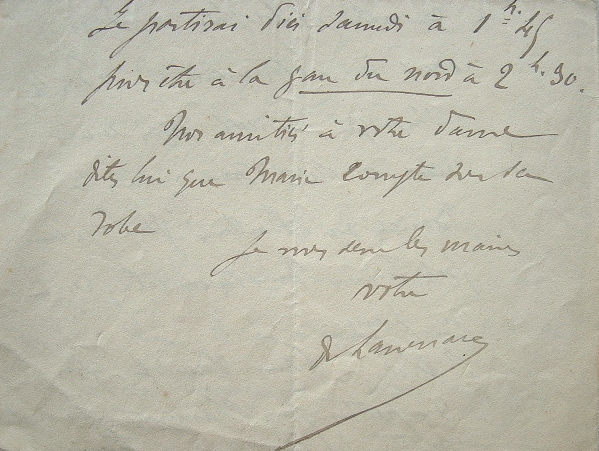 Je partirai d'ici Samedi à 1 h. 45
pour être à la gare du nord à 2 h. 30.
Nos amitiés à votre dame
dites lui que Marie compte sur sa
robe
Je vous serre les mains
votre